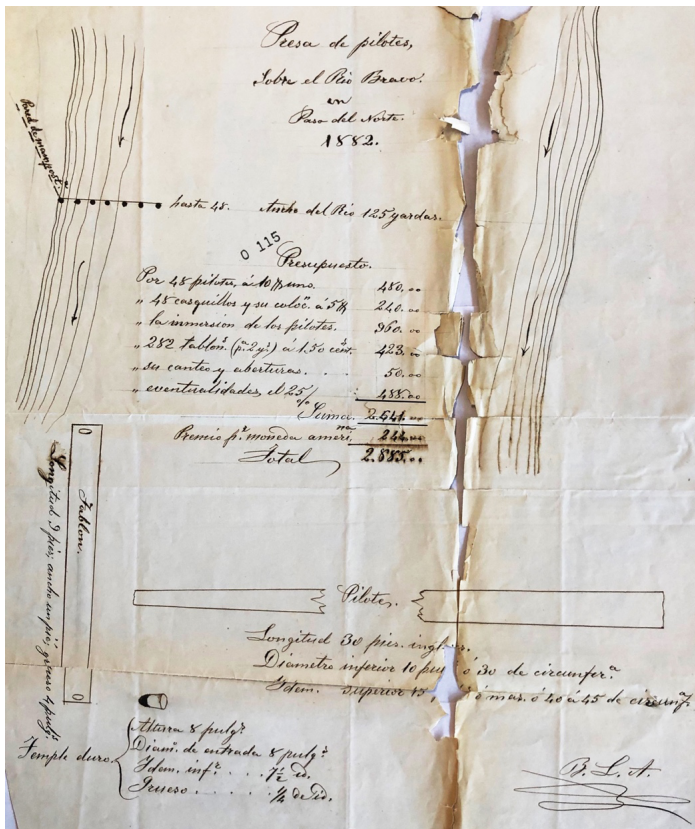 Presa de pilotes,
Sobre el Rio Bravo.
en
Paso del Norte.
1882.
Pared de mampost.ª
hasta 48. Ancho del Rio 125 yardas.
0 115
Presupuesto.
Por 48 pilotes, á 10 $ uno. 480.00
" 48 casquillos y su coloc.ⁿ á 5 $ 240.00
" la inmersion de los pilotes. 960.00
" 282 tablon.ˢ (p.ª 2 y.ˢ) á 1.50 cent.ˢ 423.00
" su canteo y aberturas. . . . 50.00
" eventualidades, el 25 % 488.00
Suma. 2.641.00
Premio p.ʳ moneda ameri.ⁿᵃ 244.00
Total 2.885.00
Tablon.
Longitud 9 pies; ancho un pié; grueso 4 pulg.ˢ
Pilotes.
Longitud 30 pies. ingl
Diametro inferior 10 pul ó 30 de circunfer.ª
Idem. superior 15 ó mas. ó 40 á 45 de circunf.
Temple duro.
Altura 8 pulg.ˢ
Diam.º de entrada 8 pulg.ˢ
Idem. inf.ʳ . . . . 7½ id.
Grueso . . . . . ¼ de id.
B. L. A.